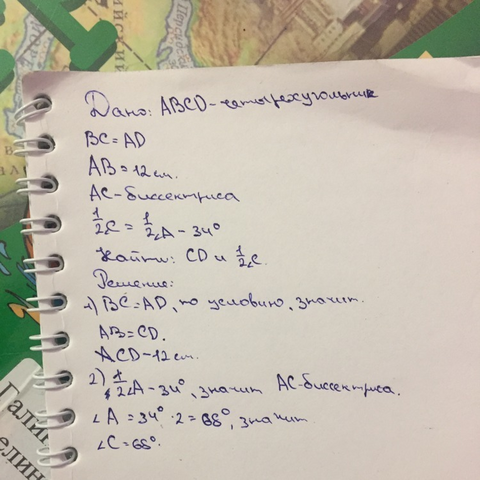 Дано: ABCD-четырехугольник
BC=AD
AB=12 см.
AC-биссектриса
1/2 C = 1/2 ∠A - 34°
Найти: CD и 1/2 ∠C.
Решение:
1) BC=AD, по условию, значит
AB=CD.
CD-12 см.
2) 1/2 ∠A-34°, значит AC-биссектриса.
∠A = 34° · 2 = 68°, значит
∠C=68°.
Гали
елин